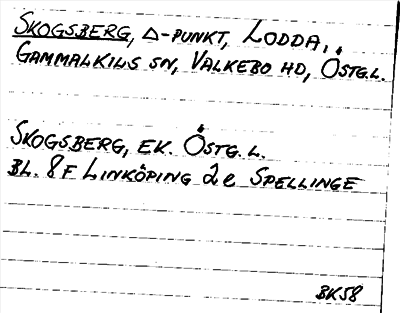 SKOGSBERG, Δ-PUNKT, LODDA,
GAMMALKILS SN, VALKEBO HD, ÖSTG.L.
SKOGSBERG, EK. ÖSTG.L.
BL. 8F LINKÖPING 2e SPELLINGE
BK58